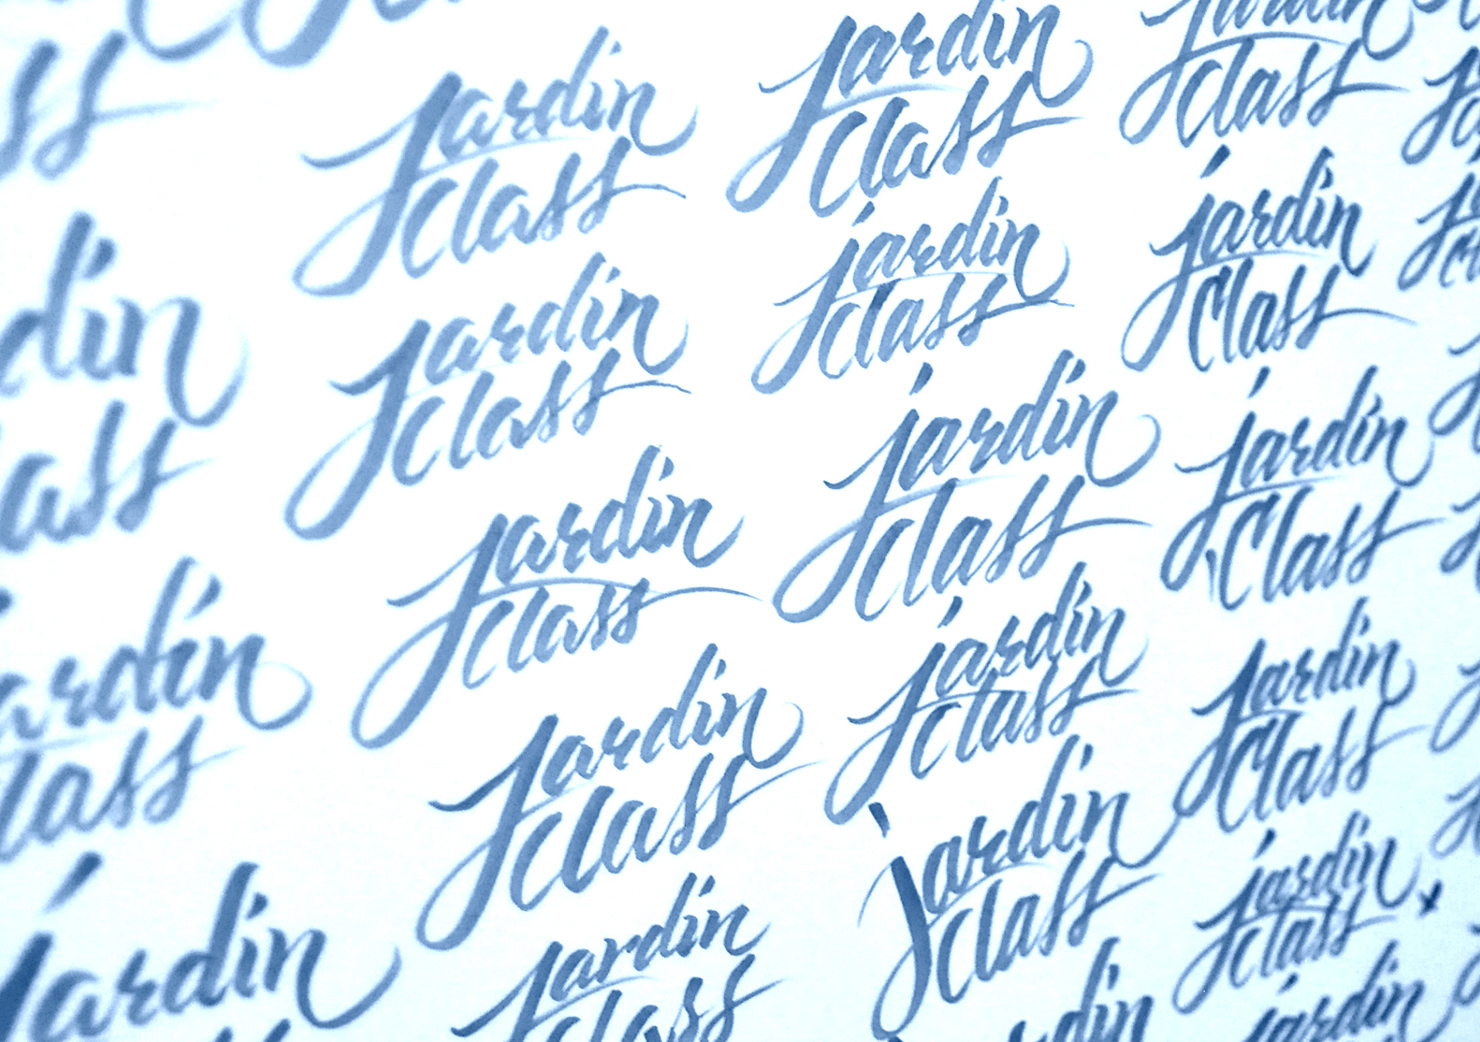 ss
Jardin
Class
jardin
Class
jardin
Class
Jardin
Class
jardin
Class
jardin
Class
din
ass
Jardin
Class
jardin
Class
jardin
Class
ardin
lass
Jardin
Class
jardin
Class
Jardin
Class
jardin
Jardin
Class
jardin
Class
jardin
Class
jardin